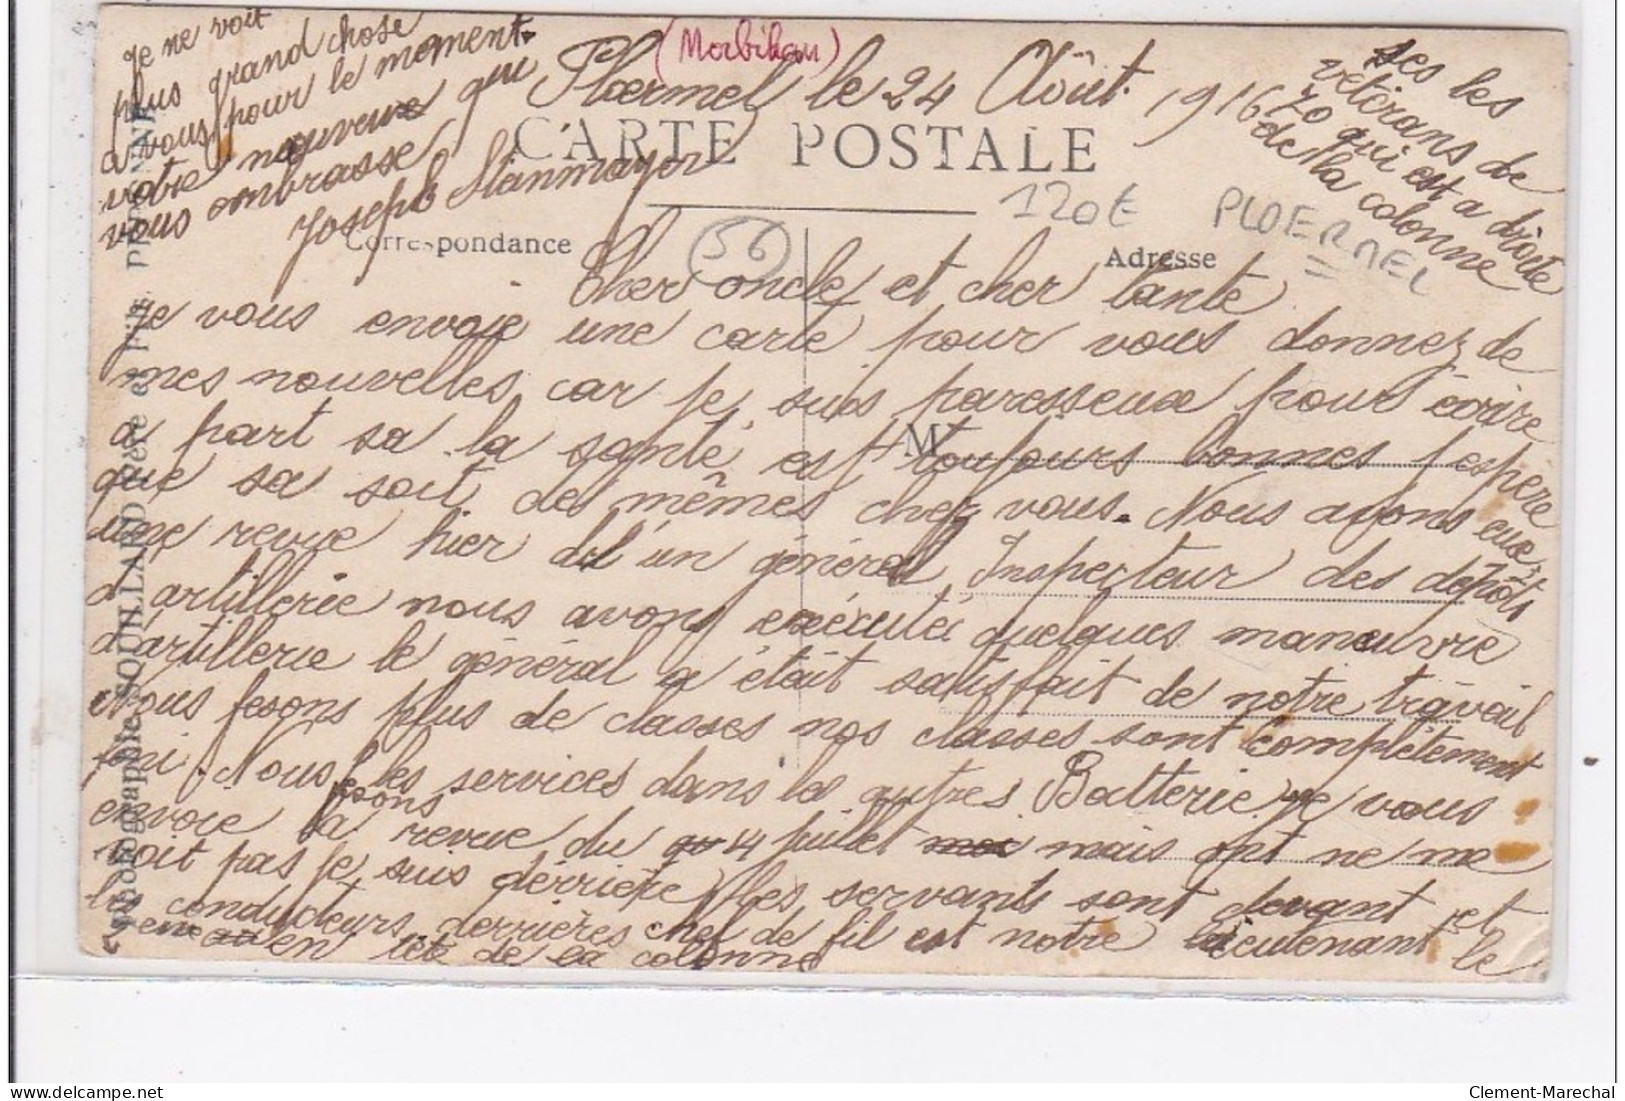 (Morbihan)
Ploermel le 24 Août 1916
CARTE POSTALE
120€ PLOERMEL
56
Correspondance
Adresse
M
Cher oncle et cher tante
Je vous envoie une carte pour vous donnez de
mes nouvelles car je suis paresseux pour écrire
a part sa la santé est toujours bonnes j espere
que sa soit de mêmes chez vous. Nous avons eux
une revue hier d'un général Inspecteur des dépôts
d'artillerie nous avons exécuté quelques manœuvre
d'artillerie le général a était satisfait de notre travail
Nous fesons plus de classes nos classes sont complètement
fini. Nous fesons les services dans les autres Batterie je vous
envoie la revue du 14 juillet mais ont ne me
voit pas je suis derrière les servants sont devant et
les conducteurs derrières chef de fil est notre lieutenant le
en tête de la colonne
ses les
vétérans de
70 qui est a droite
de la colonne
Je ne voit
plus grand chose
a vous pour le moment.
votre nouveux qui
vous embrasse
Joseph Steinmayer
Photographie SOUILLARD Père et Fils,
Clement-Marechal